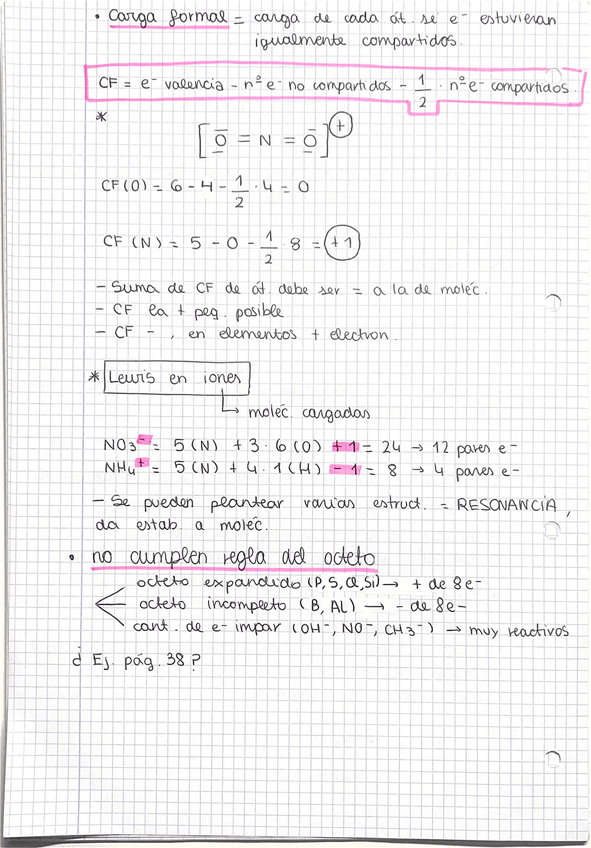 • Carga formal = carga de cada át. si e⁻ estuvieran
igualmente compartidos.
CF = e⁻ valencia - nº e⁻ no compartidos - 1/2 · nº e⁻ compartidos.
*
[O = N = O]⁺
CF(O) = 6 - 4 - 1/2 · 4 = 0
CF (N) = 5 - 0 - 1/2 · 8 = +1
- Suma de CF de át. debe ser = a la de moléc.
- CF la + peq. posible
- CF - , en elementos + electron.
* Lewis en iones
↳ moléc. cargadas
NO3⁻ = 5(N) + 3·6(O) +1 = 24 → 12 pares e⁻
NH4⁺ = 5(N) + 4·1(H) -1 = 8 → 4 pares e⁻
- Se pueden plantear varias estruct. = RESONANCIA,
da estab. a moléc.
• no cumplen regla del octeto
octeto expandido (P, S, Cl, Si) → + de 8e⁻
octeto incompleto (B, AL) → - de 8e⁻
cant. de e⁻ impar (OH⁻, NO⁻, CH3⁻) → muy reactivos
¿ Ej. pág. 38 ?